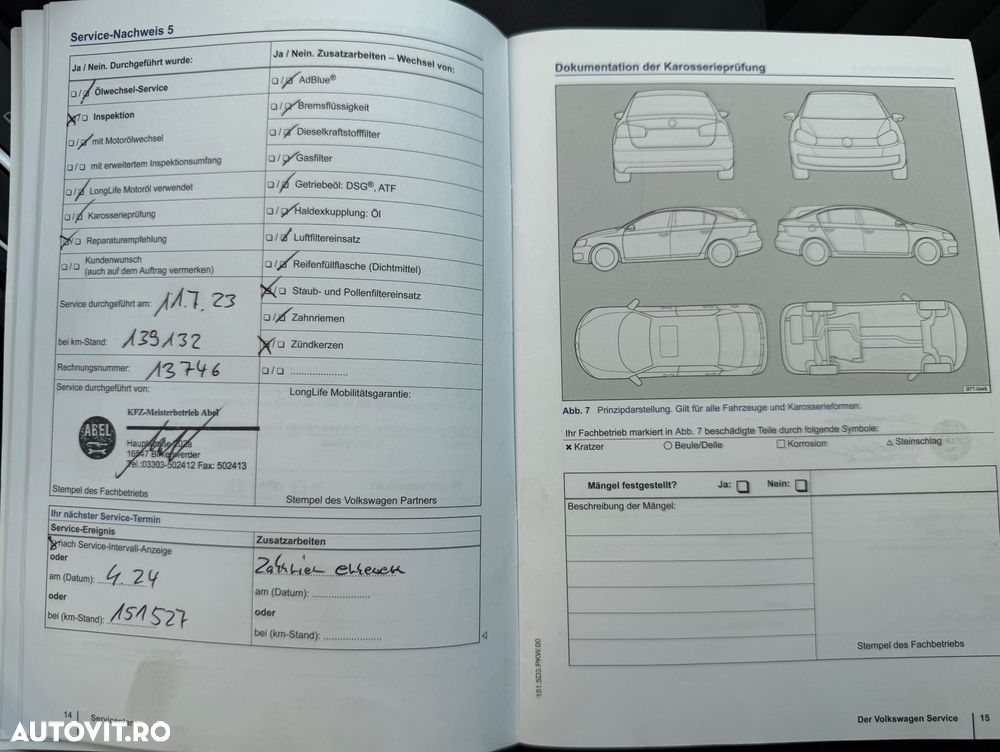 Service-Nachweis 5
Ja / Nein. Durchgeführt wurde:
❏/❏ Ölwechsel-Service
❏/❏ Inspektion
❏/❏ mit Motorölwechsel
❏/❏ mit erweitertem Inspektionsumfang
❏/❏ LongLife Motoröl verwendet
❏/❏ Karosserieprüfung
❏/❏ Reparaturempfehlung
❏/❏ Kundenwunsch
(auch auf dem Auftrag vermerken)
Service durchgeführt am: 11.7.23
bei km-Stand: 139132
Rechnungsnummer: 13746
Service durchgeführt von:
ABEL
KFZ-Meisterbetrieb Abel
Hauptstraße 202a
16547 Birkenwerder
Tel.:03303-502412 Fax: 502413
Stempel des Fachbetriebs
Ja / Nein. Zusatzarbeiten – Wechsel von:
❏/❏ AdBlue®
❏/❏ Bremsflüssigkeit
❏/❏ Dieselkraftstofffilter
❏/❏ Gasfilter
❏/❏ Getriebeöl: DSG®, ATF
❏/❏ Haldexkupplung: Öl
❏/❏ Luftfiltereinsatz
❏/❏ Reifenfüllflasche (Dichtmittel)
❏/❏ Staub- und Pollenfiltereinsatz
❏/❏ Zahnriemen
❏/❏ Zündkerzen
❏/❏ .....................
LongLife Mobilitätsgarantie:
Stempel des Volkswagen Partners
Ihr nächster Service-Termin
Service-Ereignis
nach Service-Intervall-Anzeige
oder
am (Datum): 4.24
oder
bei (km-Stand): 151527
Zusatzarbeiten
am (Datum): .....................
oder
bei (km-Stand): .....................
14 Serviceplan
AUTOVIT.RO
Dokumentation der Karosserieprüfung
B7T-0449
Abb. 7 Prinzipdarstellung. Gilt für alle Fahrzeuge und Karosserieformen.
Ihr Fachbetrieb markiert in Abb. 7 beschädigte Teile durch folgende Symbole:
× Kratzer ○ Beule/Delle □ Korrosion △ Steinschlag
Mängel festgestellt? Ja: ❏ Nein: ❏
Beschreibung der Mängel:
Stempel des Fachbetriebs
151.5D3.PKW.00
Der Volkswagen Service 15